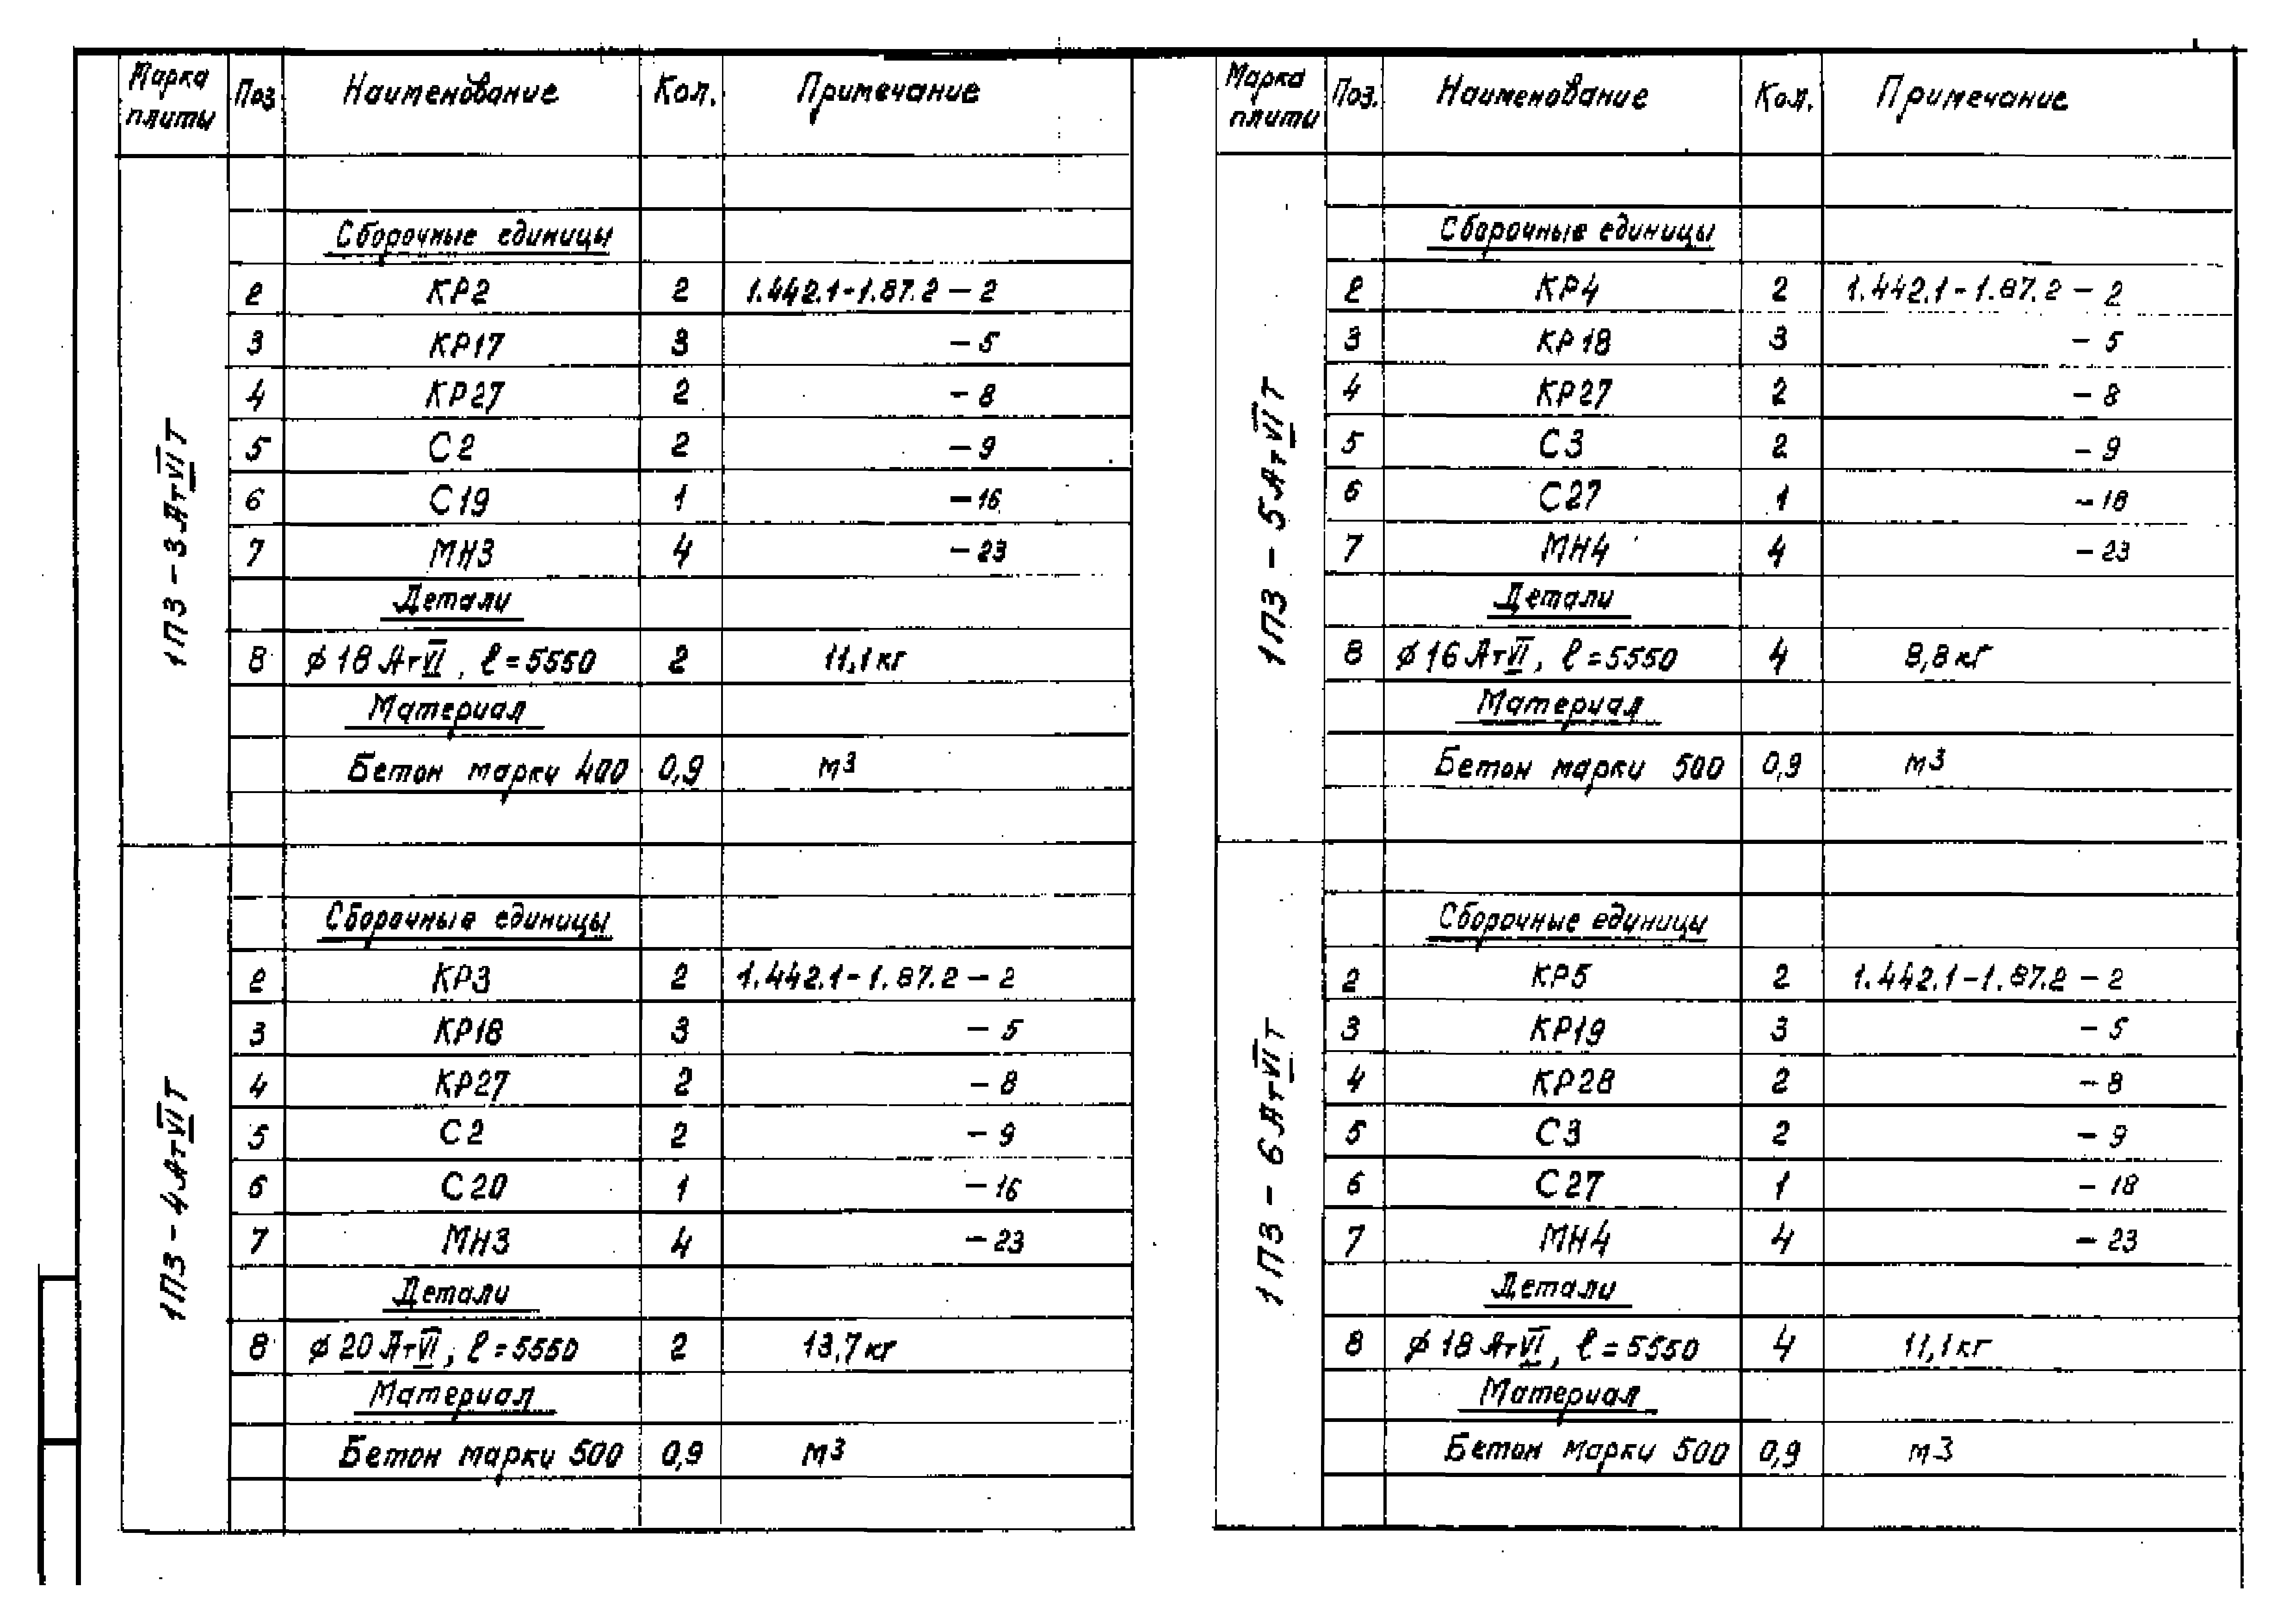 Марка плиты Поз Наименование Кол. Примечание
1П3-3АтVIТ
Сборочные единицы
2 КР2 2 1.442.1-1.87.2-2
3 КР17 3 -5
4 КР27 2 -8
5 С2 2 -9
6 С19 1 -16
7 МН3 4 -23
Детали
8 ⌀18АтVI, ℓ=5550 2 11,1кг
Материал
Бетон марки 400 0,9 м3
1П3-4АтVIТ
Сборочные единицы
2 КР3 2 1.442.1-1.87.2-2
3 КР18 3 -5
4 КР27 2 -8
5 С2 2 -9
6 С20 1 -16
7 МН3 4 -23
Детали
8 ⌀20АтVI, ℓ=5550 2 13,7кг
Материал
Бетон марки 500 0,9 м3
Марка плити Поз. Наименование Кол. Примечание
1П3-5АтVIТ
Сборочные единицы
2 КР4 2 1.442.1-1.87.2-2
3 КР18 3 -5
4 КР27 2 -8
5 С3 2 -9
6 С27 1 -18
7 МН4 4 -23
Детали
8 ⌀16АтVI, ℓ=5550 4 8,8кг
Материал
Бетон марки 500 0,9 м3
1П3-6АтVIТ
Сборочные единицы
2 КР5 2 1.442.1-1.87.2-2
3 КР19 3 -5
4 КР28 2 -8
5 С3 2 -9
6 С27 1 -18
7 МН4 4 -23
Детали
8 ⌀18АтVI, ℓ=5550 4 11,1кг
Материал
Бетон марки 500 0,9 м3